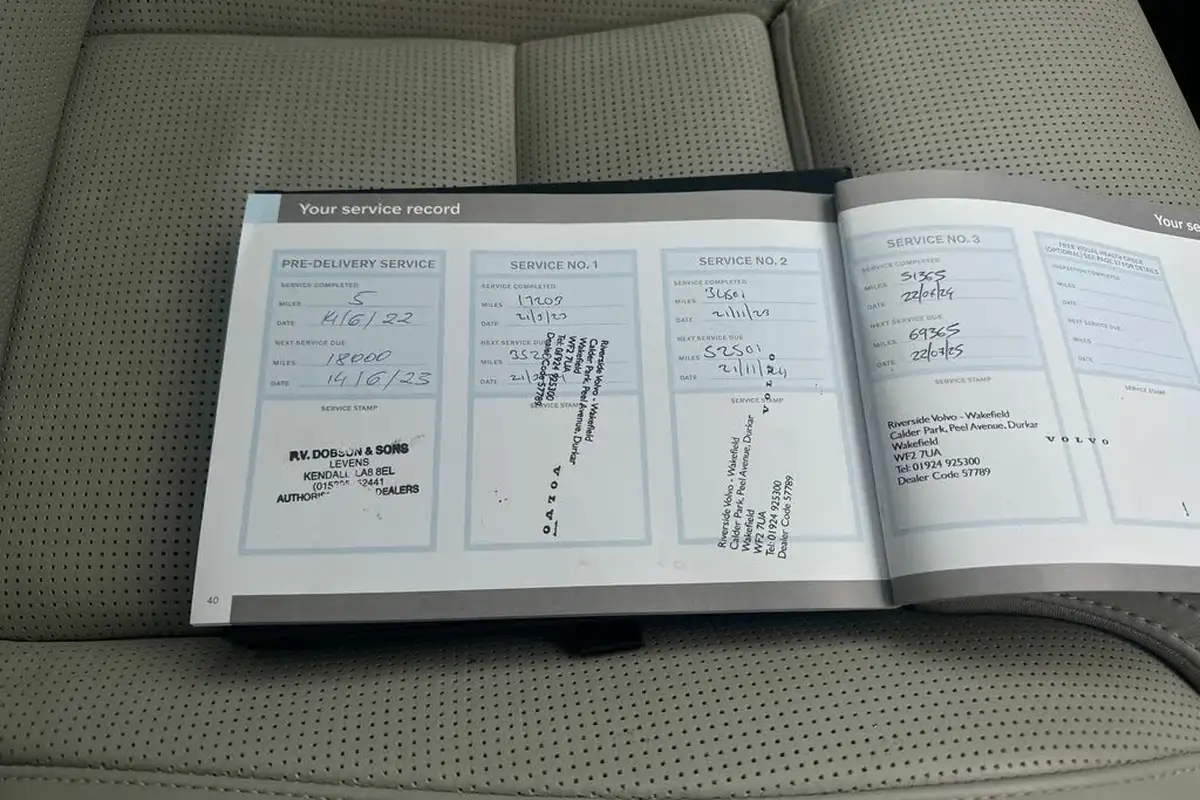 Your service record
PRE-DELIVERY SERVICE
SERVICE COMPLETED
MILES 5
DATE 14/6/22
NEXT SERVICE DUE
MILES 18000
DATE 14/6/23
SERVICE STAMP
R.V. DOBSON & SONS
LEVENS
KENDAL LA8 8EL
DEALERS
40
SERVICE NO. 1
SERVICE COMPLETED
MILES 17209
DATE
NEXT SERVICE DUE
MILES
DATE
SERVICE STAMP
Riverside Volvo - Wakefield
Calder Park, Peel Avenue, Durkar
Wakefield
WF2 7UA
Tel: 01924 925300
Dealer Code 57789
VOLVO
SERVICE NO. 2
SERVICE COMPLETED
MILES 34501
DATE 21/11/23
NEXT SERVICE DUE
MILES 52501
DATE 21/11/24
SERVICE STAMP
VOLVO
Riverside Volvo - Wakefield
Calder Park, Peel Avenue, Durkar
Wakefield
WF2 7UA
Tel: 01924 925300
Dealer Code 57789
SERVICE NO. 3
SERVICE COMPLETED
MILES 51365
DATE 22/07/24
NEXT SERVICE DUE
MILES 69365
DATE 22/07/25
SERVICE STAMP
Riverside Volvo - Wakefield
Calder Park, Peel Avenue, Durkar
Wakefield
WF2 7UA
Tel: 01924 925300
Dealer Code 57789
VOLVO
Your se
FREE VISUAL HEALTH CHECK
(OPTIONAL) SEE PAGE 37 FOR DETAILS
INSPECTION COMPLETED
MILES
DATE
NEXT SERVICE DUE
MILES
DATE
SERVICE STAMP